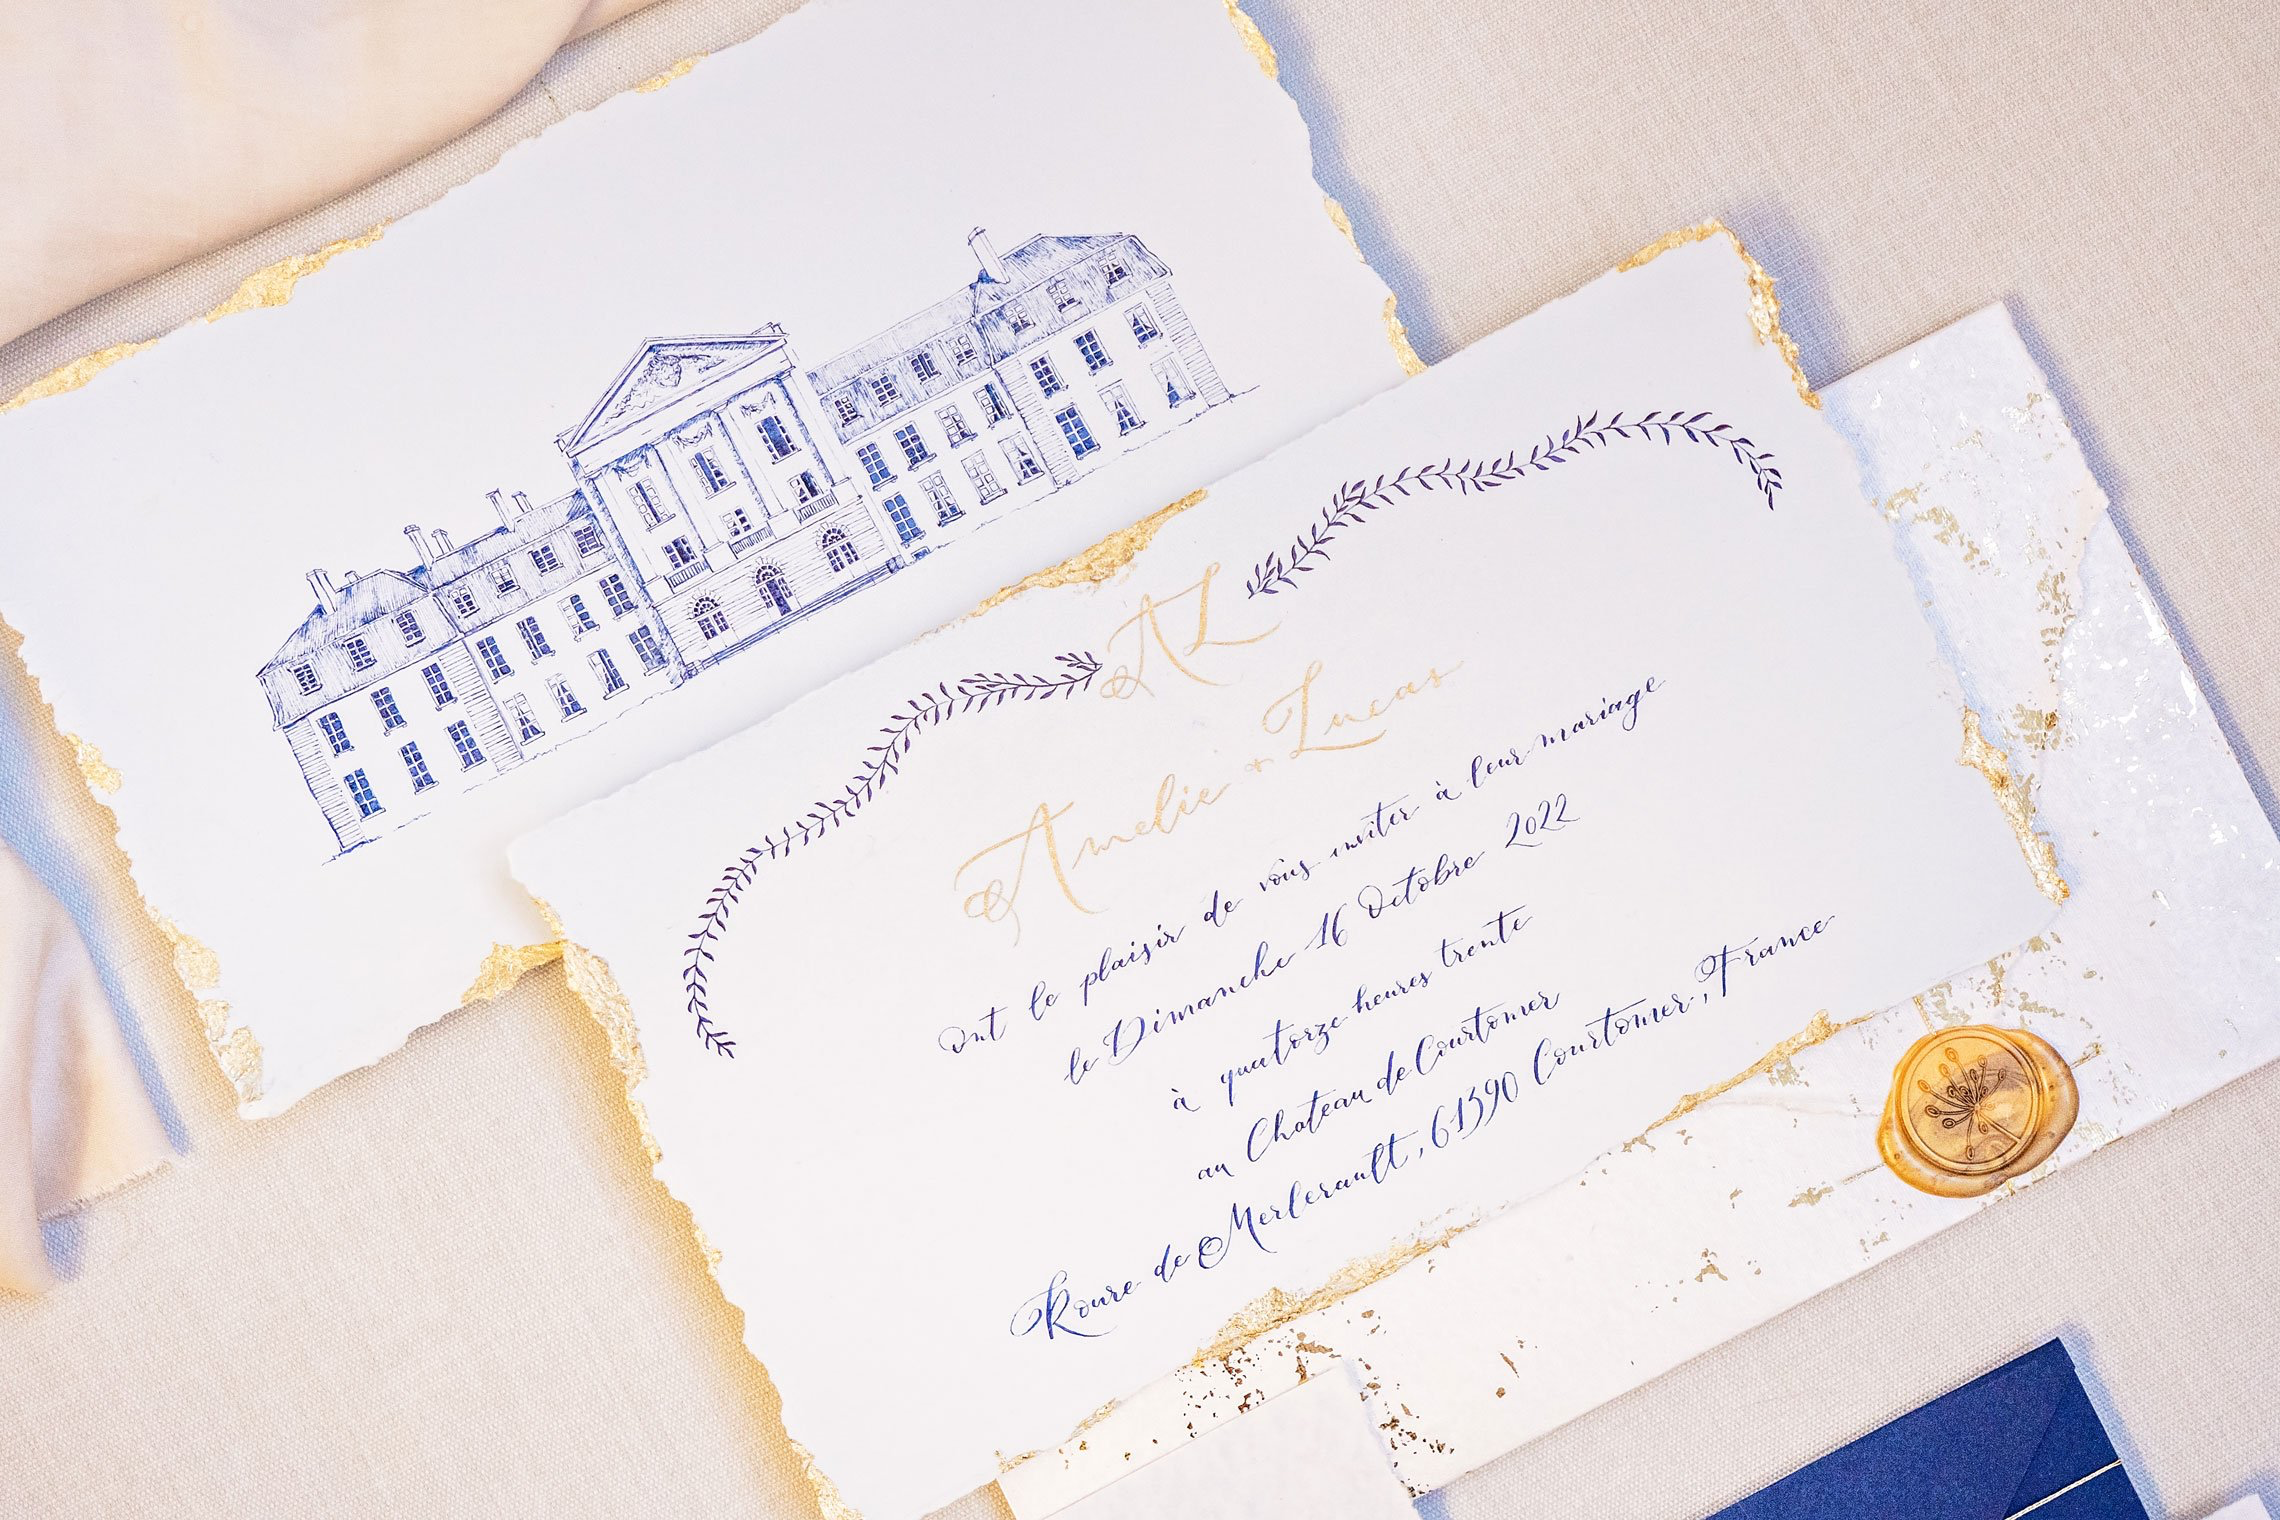 AL
Amelie & Lucas
ont le plaisir de vous inviter à leur mariage
le Dimanche 16 Octobre 2022
à quatorze heures trente
au Chateau de Courtomer
Roure de Merlerault, 61390 Courtomer, France